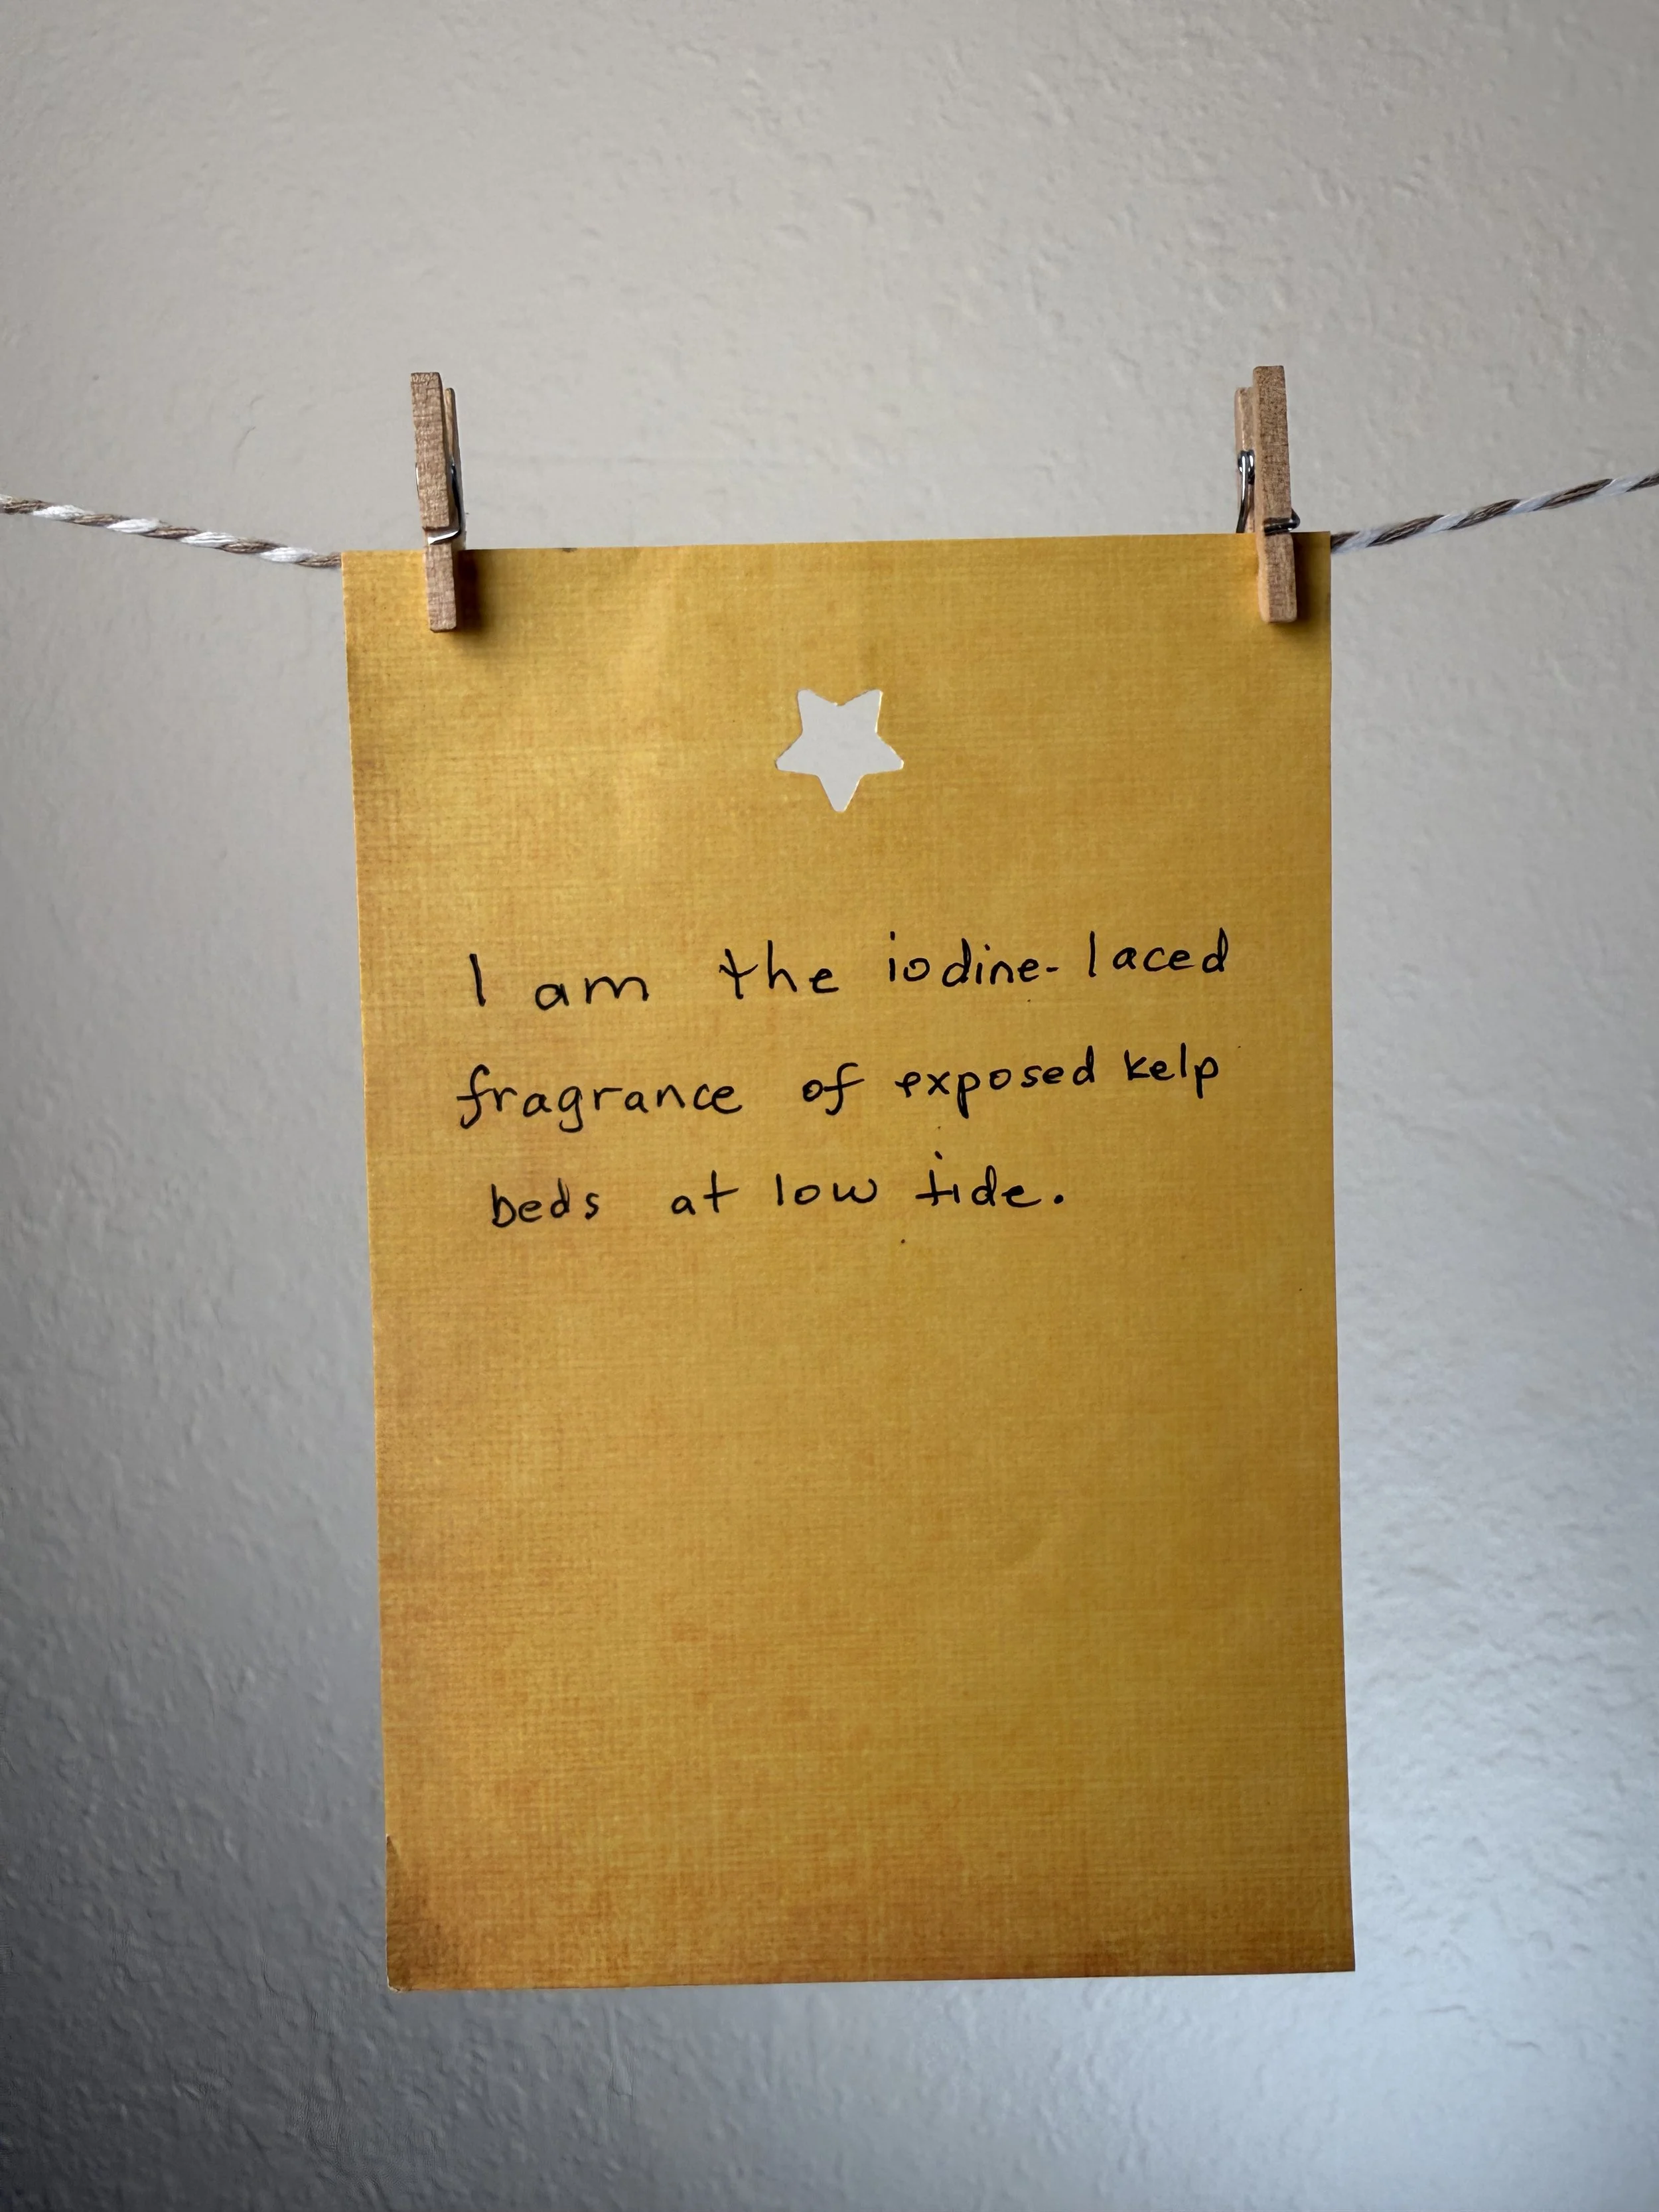 I am the iodine-laced
fragrance of exposed kelp
beds at low tide.